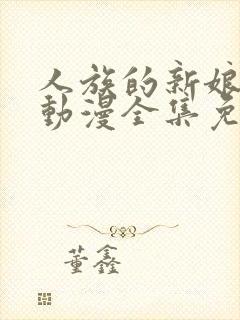 人族的新娘
動漫全集免
董鑫